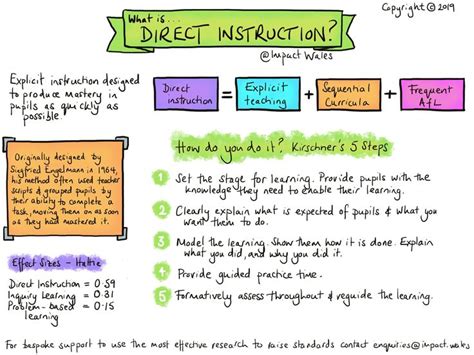 Copyright © 2019
What is...
DIRECT INSTRUCTION?
@Impact Wales
Explicit instruction designed
to produce mastery in
pupils as quickly as
possible
Direct
instruction
=
Explicit
teaching
+
Sequential
Curricula
+
Frequent
AfL
Originally designed by
Siegfried Engelmann in 1964,
his method often used teacher
scripts & grouped pupils by
their ability to complete a
task, moving them on as soon
as they had mastered it.
Effect Sizes - Hattie
Direct Instruction = 0.59
Inquiry Learning = 0.31
Problem-based = 0.15
learning
How do you do it? Kirschner's 5 Steps
1 Set the stage for learning. Provide pupils with the
knowledge they need to enable their learning.
2 Clearly explain what is expected of pupils & what you
want them to do.
3 Model the learning. Show them how it is done. Explain
what you did, and why you did it.
4 Provide guided practice time.
5 Formatively assess throughout & reguide the learning.
For bespoke support to use the most effective research to raise standards contact enquiries@impact.wales